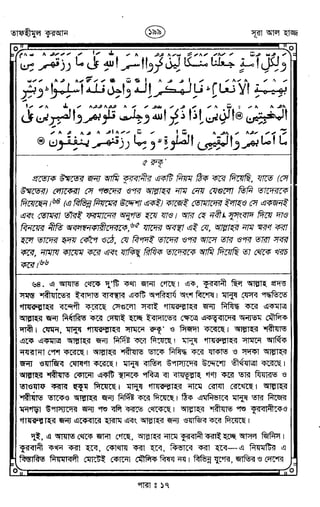 তাফহীমুল কুরআন
১৯৯
সূরা আল হাজ্জ
وَلِكُلِّ أُمَّةٍ جَعَلْنَا مَنْسَكًا لِّيَذْكُرُوا اسْمَ اللَّهِ عَلَىٰ مَا رَزَقَهُم مِّن
بَهِيمَةِ الْأَنْعَامِ ۗ فَإِلَٰهُكُمْ إِلَٰهٌ وَاحِدٌ فَلَهُ أَسْلِمُوا ۗ وَبَشِّرِ
الْمُخْبِتِينَ ۝ الَّذِينَ إِذَا ذُكِرَ اللَّهُ وَجِلَتْ قُلُوبُهُمْ وَالصَّابِرِينَ عَلَىٰ
مَا أَصَابَهُمْ وَالْمُقِيمِي الصَّلَاةِ ۙ وَمِمَّا رَزَقْنَاهُمْ يُنفِقُونَ ۝
৫ রুকূ'
প্রত্যেক উম্মতের জন্য আমি কুরবানীর একটি নিয়ম ঠিক করে দিয়েছি, যাতে (সে
উম্মতের) লোকেরা সে পশুদের ওপর আল্লাহর নাম নেয় যেগুলো তিনি তাদেরকে
দিয়েছেন।৬৪ (এ বিভিন্ন নিয়মের উদ্দেশ্য একই) কাজেই তোমাদের ইলাহও সে একজনই
এবং তোমরা তাঁরই ফরমানের অনুগত হয়ে যাও। আর হে নবী! সুসংবাদ দিয়ে দাও
বিনয়ের নীতি অবলম্বনকারীদেরকে,৬৫ যাদের অবস্থা এই যে, আল্লাহর নাম স্মরণ করা
হলে তাদের হৃদয় কেঁপে ওঠে, যে বিপদই তাদের ওপর আসে তার ওপর তারা সবর
করে, নামায কায়েম করে এবং যাকিছু রিযিক তাদেরকে আমি দিয়েছি তা থেকে খরচ
করে।৬৬
৬৪. এ আয়াত থেকে দু'টি কথা জানা গেছে। এক, কুরবানী ছিল আল্লাহ প্রদত্ত
সমস্ত শরীয়াতের ইবাদাত ব্যবস্থার একটি অপরিহার্য অংশ বিশেষ। মানুষ যেসব পদ্ধতিতে
গায়রুল্লাহর বন্দেগী করেছে সেগুলো সবই গায়রুল্লাহর জন্য নিষিদ্ধ করে একমাত্র
আল্লাহর জন্য নির্দিষ্ট করে দেয়াই হচ্ছে ইবাদাতের ক্ষেত্রে একত্ববাদের অন্যতম মৌলিক
দাবী। যেমন, মানুষ গায়রুল্লাহর সামনে রুকূ' ও সিজদা করেছে। আল্লাহর শরীয়াত
একে একমাত্র আল্লাহর জন্য নির্দিষ্ট করে দিয়েছে। মানুষ গায়রুল্লাহর সামনে আর্থিক
নযরানা পেশ করেছে। আল্লাহর শরীয়াত তাকে নিষিদ্ধ করে যাকাত ও সাদকা আল্লাহর
জন্য ওয়াজিব ঘোষণা করেছে। মানুষ বাতিল উপাস্যদের উদ্দেশ্যে তীর্থযাত্রা করেছে।
আল্লাহর শরীয়াত কোনো একটি স্থানকে পবিত্র বা বায়তুল্লাহ গণ্য করে তার যিয়ারত ও
তাওয়াফ করার হুকুম দিয়েছে। মানুষ গায়রুল্লাহর নামে রোযা রেখেছে। আল্লাহর
শরীয়াত তাকেও আল্লাহর জন্য নির্দিষ্ট করে দিয়েছে। ঠিক এমনিভাবে মানুষ তার নিজের
মনগড়া উপাস্যদের জন্য পশু বলি করতে থেকেছে। আল্লাহর শরীয়াত পশু কুরবানীকেও
গায়রুল্লাহর জন্য একেবারে হারাম এবং আল্লাহর জন্য ওয়াজিব করে দিয়েছে।
দুই, এ আয়াত থেকে জানা গেছে, আল্লাহর নামে কুরবানী করাই হচ্ছে আসল জিনিস।
কুরবানী কখন করা হবে, কোথায় করা হবে, কিভাবে করা হবে—এ নিয়মটির এ
বিস্তারিত নিয়মাবলী মোটেই কোনো মৌলিক বিষয় নয়। বিভিন্ন যুগের, জাতির ও দেশের
পারা ঃ ১৭